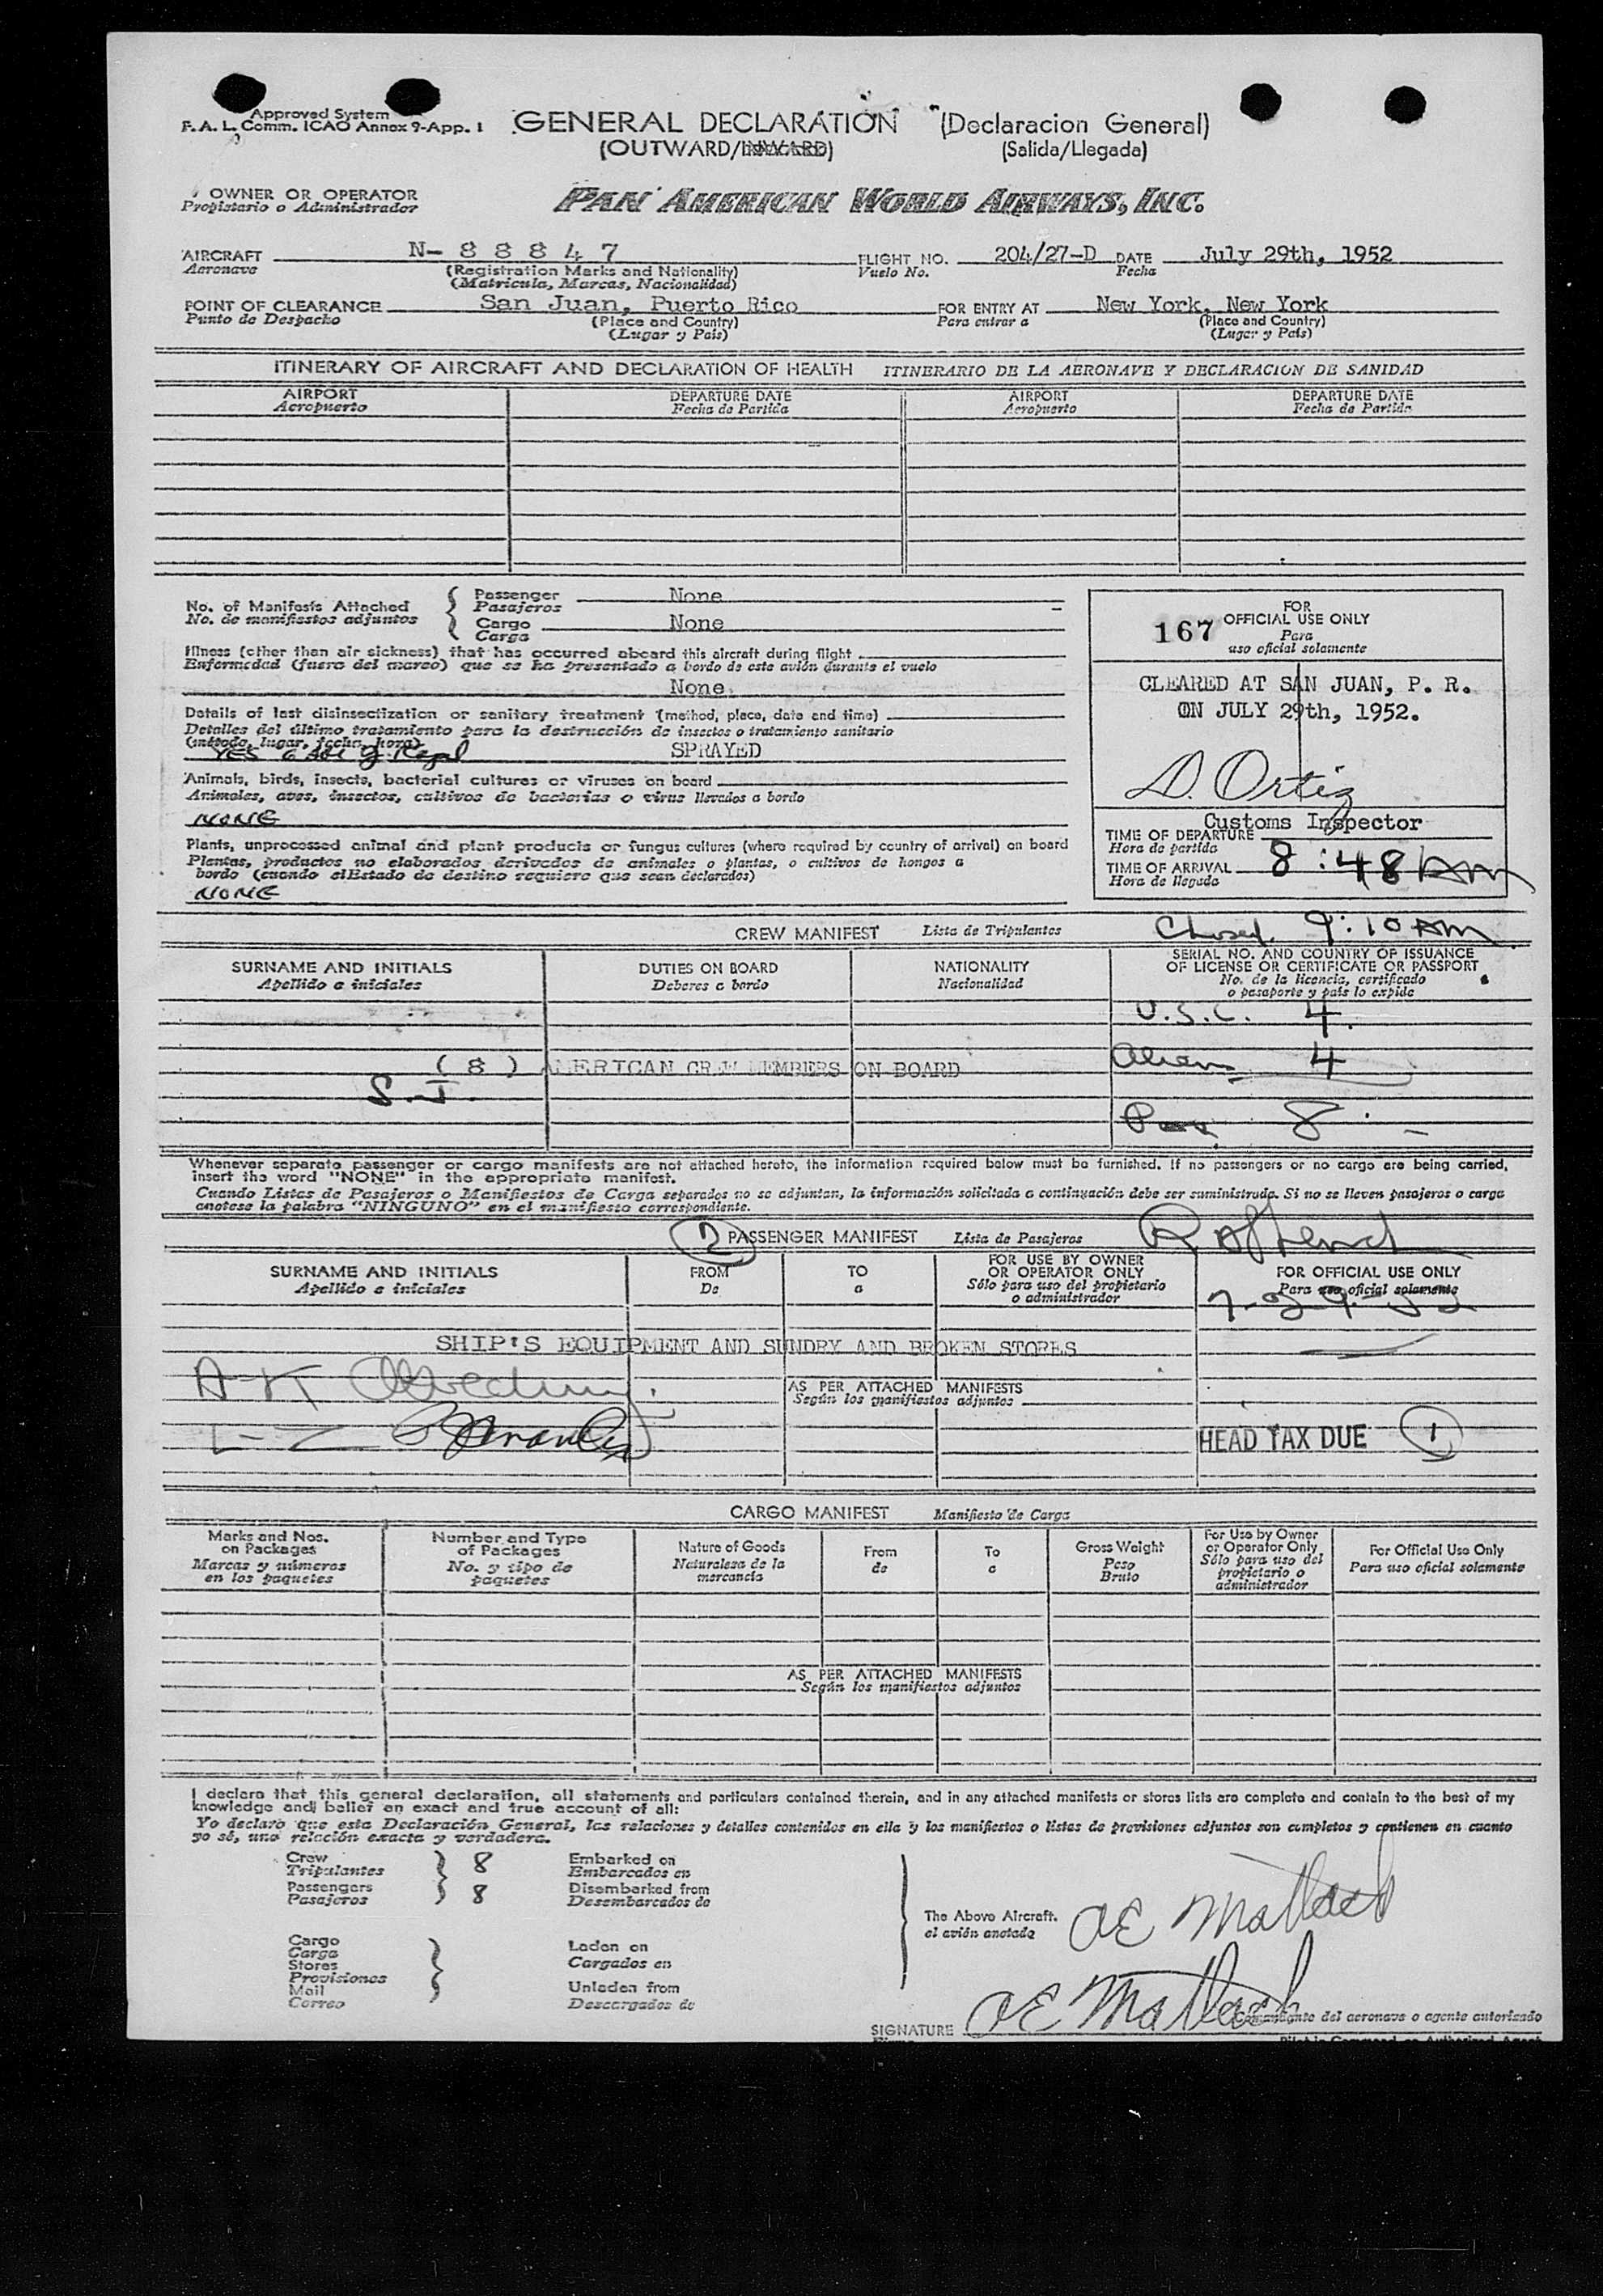 Approved System
F. A. L. Comm. ICAO Annex 9-App. 1
GENERAL DECLARATION (Declaracion General)
(OUTWARD/INWARD) (Salida/Llegada)
OWNER OR OPERATOR
Propietario o Administrador
PAN AMERICAN WORLD AIRWAYS, INC.
AIRCRAFT N- 8 8 8 4 7 FLIGHT NO. 204/27-D DATE July 29th, 1952
Aeronave (Registration Marks and Nationality) Vuelo No. Fecha
(Matricula, Marcas, Nacionalidad)
POINT OF CLEARANCE San Juan, Puerto Rico FOR ENTRY AT New York, New York
Punto de Despacho (Place and Country) Para entrar a (Place and Country)
(Lugar y País) (Lugar y País)
ITINERARY OF AIRCRAFT AND DECLARATION OF HEALTH ITINERARIO DE LA AERONAVE Y DECLARACION DE SANIDAD
AIRPORT DEPARTURE DATE AIRPORT DEPARTURE DATE
Aeropuerto Fecha de Partida Aeropuerto Fecha de Partida
No. of Manifests Attached
No. de manifiestos adjuntos
Passenger None
Pasajeros
Cargo None
Carga
Illness (other than air sickness) that has occurred aboard this aircraft during flight
Enfermedad (fuera del mareo) que se ha presentado a bordo de este avión durante el vuelo
None
Details of last disinsectization or sanitary treatment (method, place, date and time)
Detalles del último tratamiento para la destrucción de insectos o tratamiento sanitario
(método, lugar, fecha, hora)
YES SPRAYED
Animals, birds, insects, bacterial cultures or viruses on board
Animales, aves, insectos, cultivos de bacterias o virus llevados a bordo
NONE
Plants, unprocessed animal and plant products or fungus cultures (where required by country of arrival) on board
Plantas, productos no elaborados derivados de animales o plantas, o cultivos de hongos a
bordo (cuando elEstado de destino requiere que sean declarados)
NONE
FOR
167 OFFICIAL USE ONLY
Para
uso oficial solamente
CLEARED AT SAN JUAN, P. R.
ON JULY 29th, 1952.
D. Ortiz
Customs Inspector
TIME OF DEPARTURE
Hora de partida
TIME OF ARRIVAL 8:48 AM
Hora de llegada
Closed 9:10 AM
CREW MANIFEST Lista de Tripulantes
SURNAME AND INITIALS DUTIES ON BOARD NATIONALITY SERIAL NO. AND COUNTRY OF ISSUANCE
OF LICENSE OR CERTIFICATE OR PASSPORT
Apellido e iniciales Deberes a bordo Nacionalidad No. de la licencia, certificado
o pasaporte y país lo expide
U.S.C. 4.
( 8 ) AMERICAN CREW MEMBERS ON BOARD Aliens 4
S.J.
Pax 8
Whenever separate passenger or cargo manifests are not attached hereto, the information required below must be furnished. If no passengers or no cargo are being carried,
insert the word "NONE" in the appropriate manifest.
Cuando Listas de Pasajeros o Manifiestos de Carga separados no se adjuntan, la información solicitada a continuación debe ser suministrada. Si no se lleven pasajeros o carga
anotese la palabra "NINGUNO" en el manifiesto correspondiente.
2 PASSENGER MANIFEST Lista de Pasajeros
SURNAME AND INITIALS FROM TO FOR USE BY OWNER
OR OPERATOR ONLY FOR OFFICIAL USE ONLY
Apellido e iniciales De a Sólo para uso del propietario
o administrador Para uso oficial solamente
7-29-52
SHIP'S EQUIPMENT AND SUNDRY AND BROKEN STORES
AS PER ATTACHED MANIFESTS
Según los manifiestos adjuntos
HEAD TAX DUE 1
CARGO MANIFEST Manifiesto de Carga
Marks and Nos.
on Packages
Marcas y números
en los paquetes
Number and Type
of Packages
No. y tipo de
paquetes
Nature of Goods
Naturalesa de la
mercancía
From
de
To
a
Gross Weight
Peso
Bruto
For Use by Owner
or Operator Only
Sólo para uso del
propietario o
administrador
For Official Use Only
Para uso oficial solamente
AS PER ATTACHED MANIFESTS
Según los manifiestos adjuntos
I declare that this general declaration, all statements and particulars contained therein, and in any attached manifests or stores lists are complete and contain to the best of my
knowledge and belief an exact and true account of all:
Yo declaro que esta Declaración General, las relaciones y detalles contenidos en ella y los manifiestos o listas de provisiones adjuntos son completos y contienen en cuanto
yo sé, una relación exacta y verdadera.
Crew 8 Embarked on
Tripulantes Embarcados en
Passengers 8 Disembarked from
Pasajeros Desembarcados de
Cargo Laden on
Carga Cargados en
Stores
Provisiones
Mail Unladen from
Correo Descargados de
The Above Aircraft.
el avión anotado
SIGNATURE
Comandante del aeronave o agente autorizado